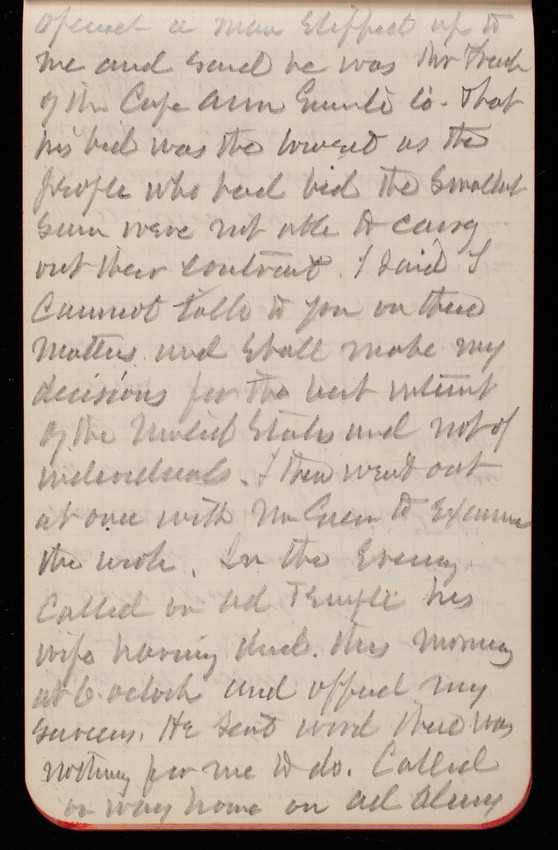 opened a man stepped up to
me and said he was the Treas
of the Cape Ann Granite Co. that
his bid was the lowest as the
people who had bid the smallest
sum were not able to carry
out their contract. I said I
cannot talk to you on these
matters and shall make my
decisions for the best interest
of the United States and not of
individuals. I then went out
at once with to examine
the work. In the Evening
Called on Ad Temple his
wife having died this morning
at 6 oclock and offered my
services. He sent word there was
nothing for me to do. Called
on way home on ad